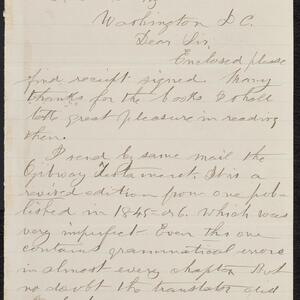 Washington D.C.
Dear Sir,
Enclosed please
find receipt signed. Many
thanks for the books I shall
take great pleasure in reading
them.
I send by same mail the
Ojibway Testament. It is a
revised edition from one pub-
lished in 1845 or 6. Which was
very imperfect. Even this one
contains grammatical errors
in almost every chapter. But
no doubt the translator did